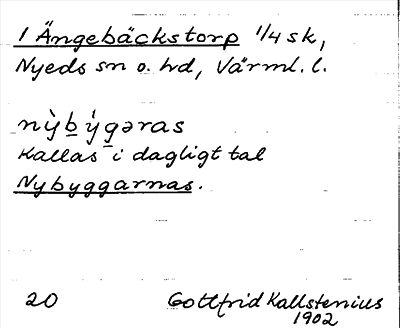 1 Ängebäckstorp 1/4 sk,
Nyeds sn o. hd, Värml. l.
nỳb̲ý̲g̲əras
Kallas i dagligt tal
Nybyggarnas.
20 Gottfrid Kallstenius
1902